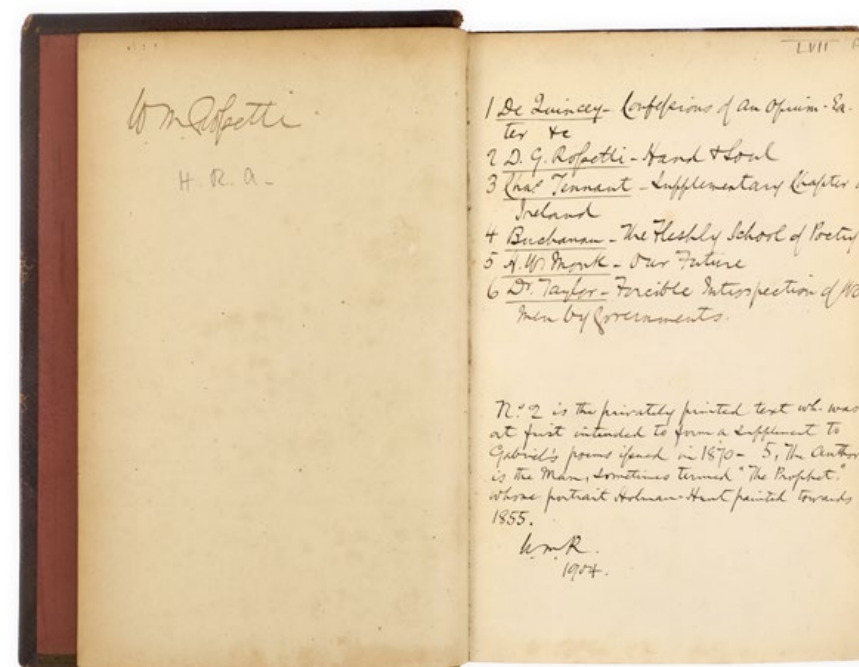 Wm Rossetti
H. R. A-
LVII
1 De Quincey - Confessions of an Opium-Ea-
ter &c
2 D. G. Rossetti - Hand & Soul
3 Chas Tennant - Supplementary Chapter
Ireland
4 Buchanan - The Fleshly School of Poetry
5 H. W. Monk - Our Future
6 Dr. Taylor - Forcible Introspection of Wo
men by Governments.
No. 2 is the privately printed text wh. was
at first intended to form a supplement to
Gabriel's poems issued in 1870 - 5, The Author
is the Man, sometimes termed "The Prophet",
whose portrait Holman-Hunt painted towards
1855.
W.M.R.
1904.